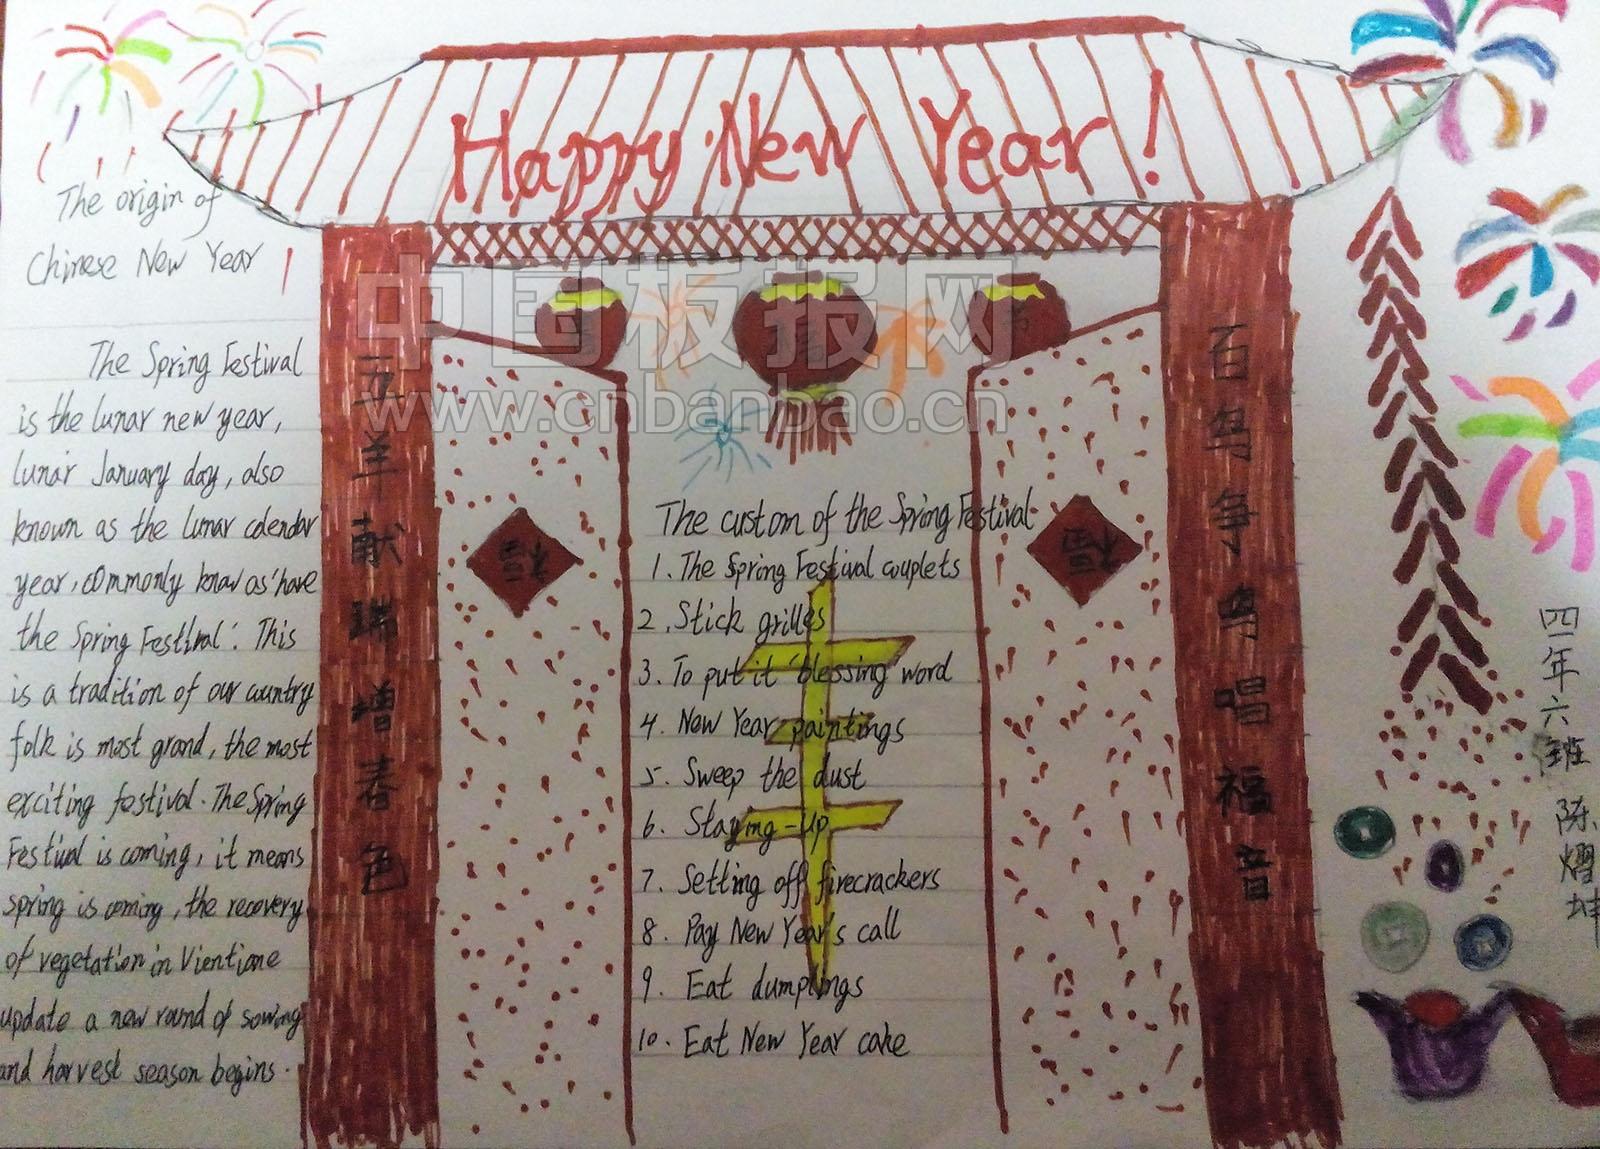 Happy New Year!
The origin of
Chinese New Year!
The Spring Festival
is the lunar new year,
lunar January day, also
known as the lunar calendar
year, commonly know as 'have
the Spring Festival'. This
is a tradition of our country
folk is most grand, the most
exciting festival. The Spring
Festival is coming, it means
spring is coming, the recovery
of vegetation in Vientiane
update a new round of sowing
and harvest season begins.
五羊献瑞增春色
中国板报网
www.cnbanbao.cn
福
The custom of the Spring Festival
1. The Spring Festival couplets
2. Stick grilles
3. To put it 'blessing' word
4. New Year paintings
5. Sweep the dust
6. Staying-up
7. Setting off firecrackers
8. Pay New Year's call
9. Eat dumplings
10. Eat New Year cake
福
百鸟争鸣唱福音
四年六班
陈熠坤